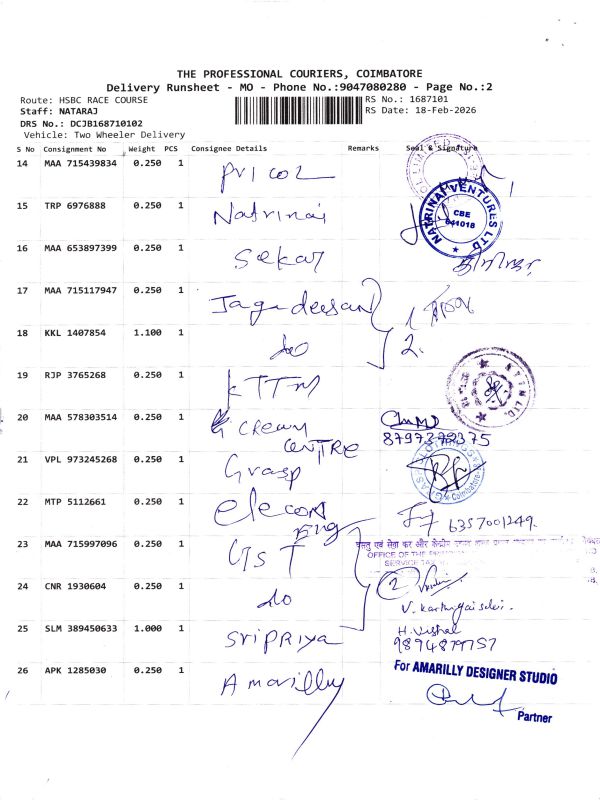 THE PROFESSIONAL COURIERS, COIMBATORE
Delivery Runsheet - MO - Phone No.:9047080280 - Page No.:2
Route: HSBC RACE COURSE
Staff: NATARAJ
DRS No.: DCJB168710102
Vehicle: Two Wheeler Delivery
RS No.: 1687101
RS Date: 18-Feb-2026
S No Consignment No Weight PCS Consignee Details Remarks Seal & Signature
14 MAA 715439834 0.250 1 Pricol
15 TRP 6976888 0.250 1 Natrinai
NATRINAI VENTURES LTD
CBE
641018
16 MAA 653897399 0.250 1 Sekar
17 MAA 715117947 0.250 1 Jagadeesan
18 KKL 1407854 1.100 1 do 2.
19 RJP 3765268 0.250 1 KTTM
20 MAA 578303514 0.250 1 G Cream
CENTRE
21 VPL 973245268 0.250 1 Grasp
22 MTP 5112661 0.250 1 elecon
Eng
6357001249.
23 MAA 715997096 0.250 1 GST
OFFICE OF THE
SERVICE TAX
24 CNR 1930604 0.250 1 do 2
V. Karthigaiselvi.
25 SLM 389450633 1.000 1 Sripriya
H. Vishal
26 APK 1285030 0.250 1 Amarilly
For AMARILLY DESIGNER STUDIO
Partner